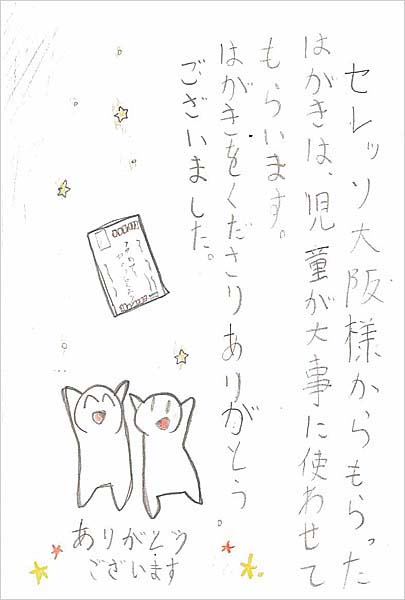 セレッソ大阪様からもらった
はがきは、児童が大事に使わせて
もらいます。
はがきをくださりありがとう
ございました。
ありがとう
ございます